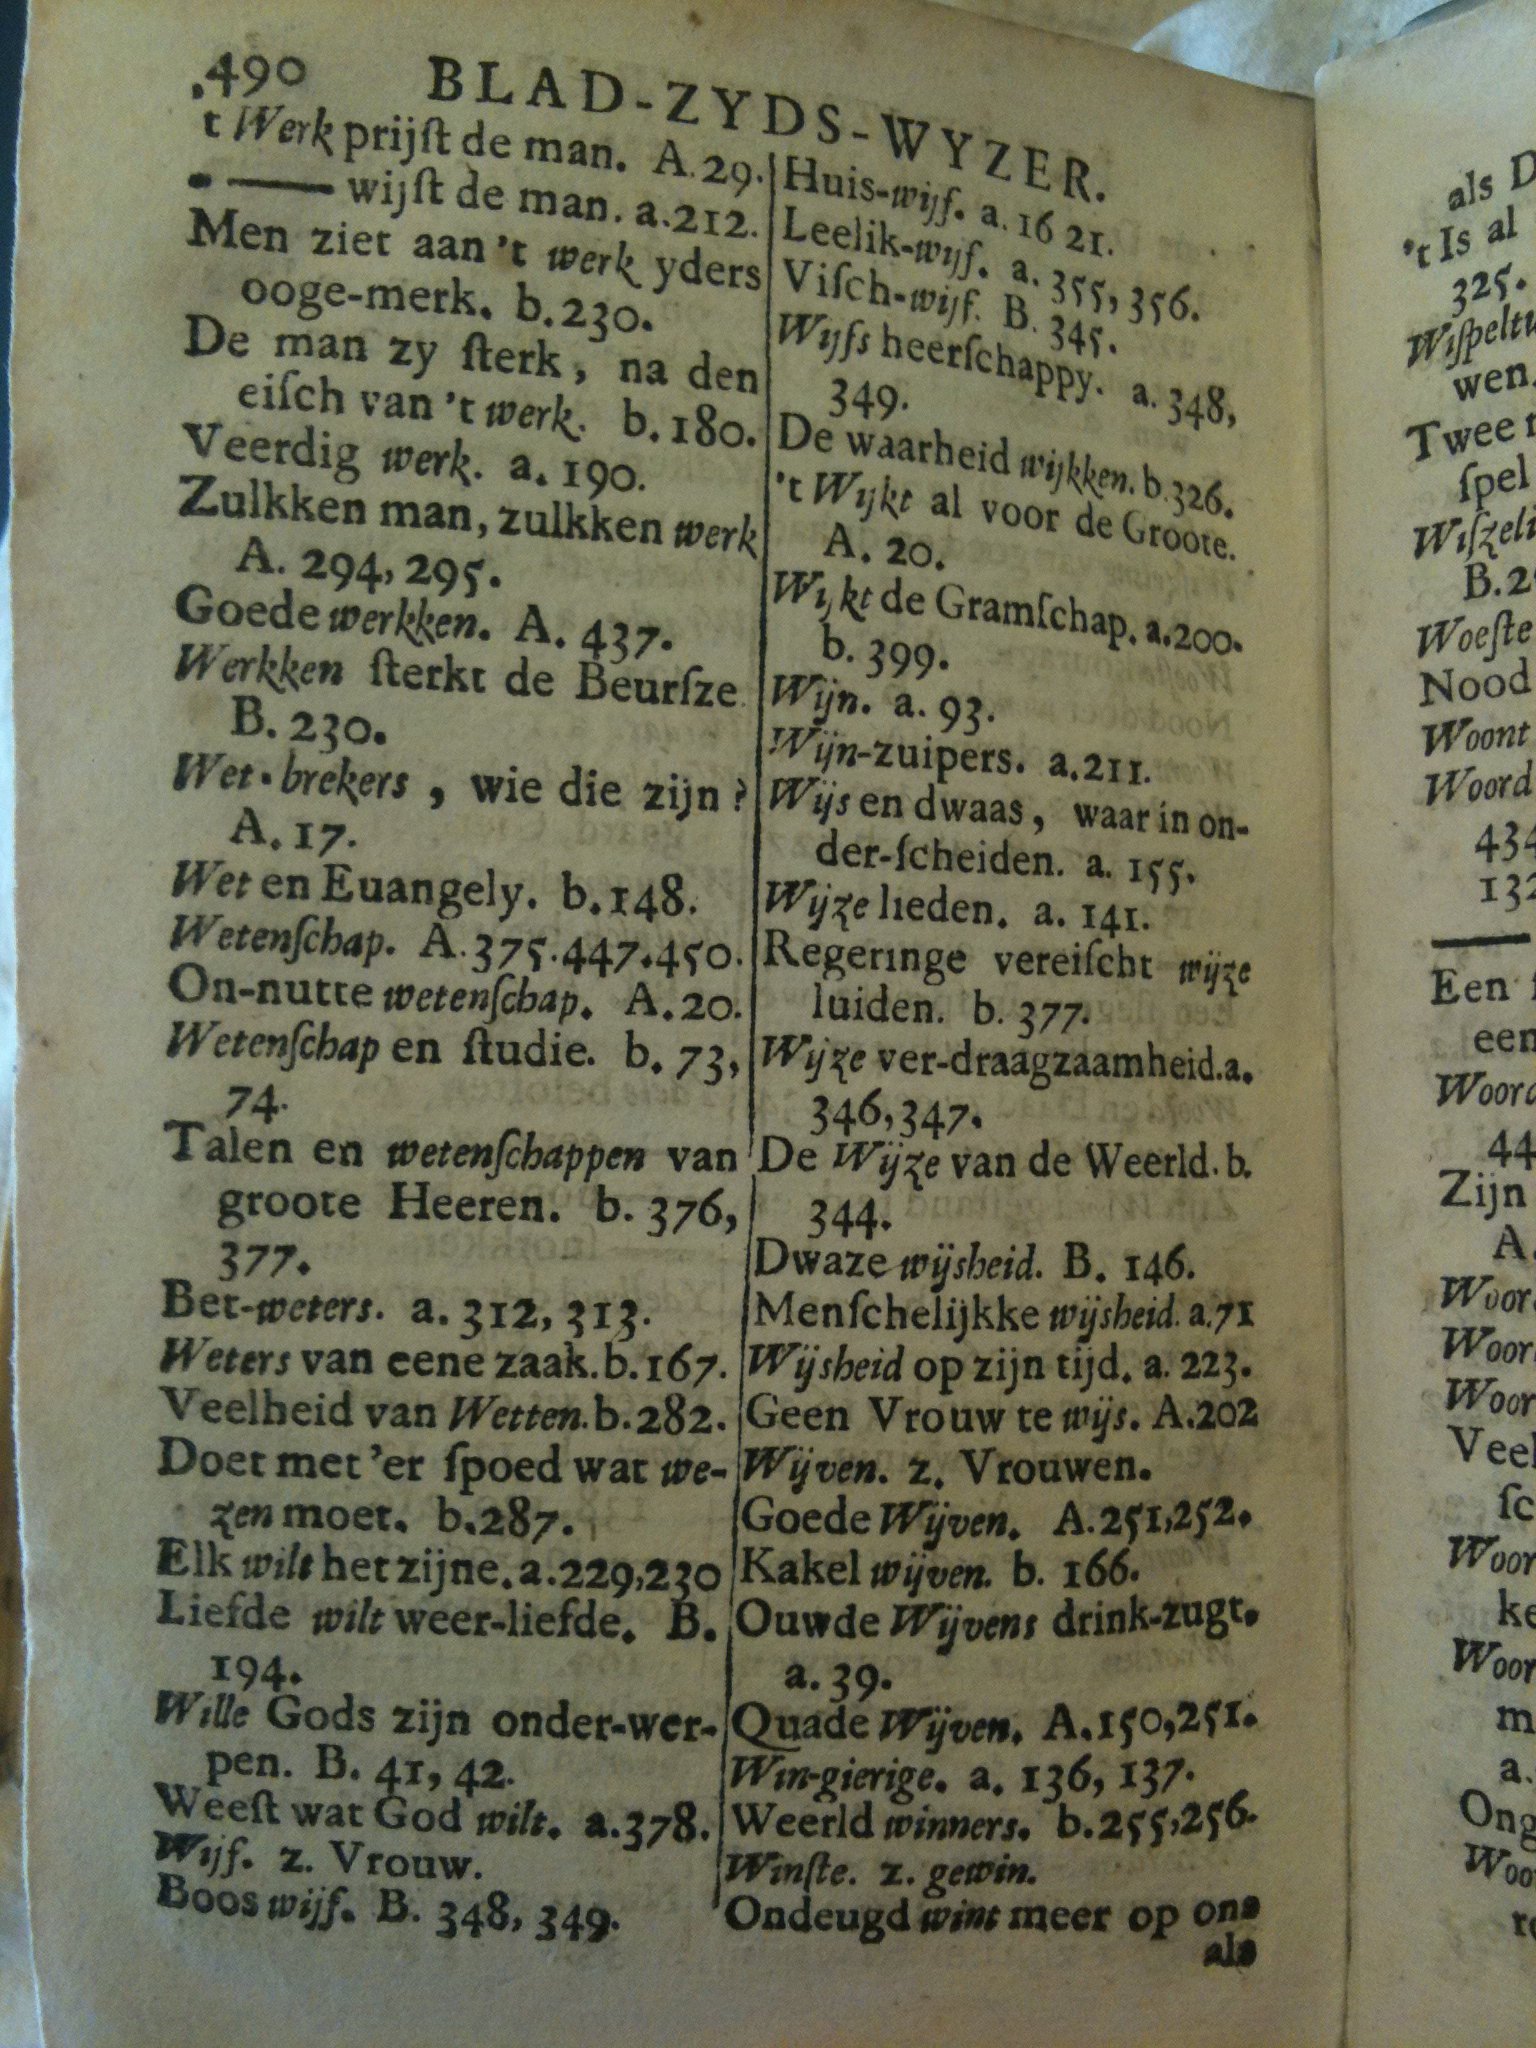 490 BLAD-ZYDS-WYZER.
't Werk prijſt de man. A. 29.
• —— wijſt de man. a. 212.
Men ziet aan 't werk yders
ooge-merk. b. 230.
De man zy ſterk, na den
eiſch van 't werk. b. 180.
Veerdig werk. a. 190.
Zulkken man, zulkken werk
A. 294, 295.
Goede werkken. A. 437.
Werkken ſterkt de Beurſze.
B. 230.
Wet-brekers, wie die zijn?
A. 17.
Wet en Euangely. b. 148.
Wetenſchap. A. 375. 447. 450.
On-nutte wetenſchap. A. 20.
Wetenſchap en ſtudie. b. 73,
74.
Talen en wetenſchappen van
groote Heeren. b. 376,
377.
Bet-weters. a. 312, 313.
Weters van eene zaak. b. 167.
Veelheid van Wetten. b. 282.
Doet met 'er ſpoed wat we-
zen moet. b. 287.
Elk wilt het zijne. a. 229, 230
Liefde wilt weer-liefde. B.
194.
Wille Gods zijn onder-wer-
pen. B. 41, 42.
Weeſt wat God wilt. a. 378.
Wijf. z. Vrouw.
Boos wijf. B. 348, 349.
Huis-wijf. a. 16 21.
Leelik-wijf. a. 355, 356.
Viſch-wijf. B. 345.
Wijfs heerſchappy. a. 348,
349.
De waarheid wijkken. b. 326.
't Wijkt al voor de Groote.
A. 20.
Wijkt de Gramſchap. a. 200.
b. 399.
Wijn. a. 93.
Wijn-zuipers. a. 211.
Wijs en dwaas, waar in on-
der-ſcheiden. a. 155.
Wijze lieden. a. 141.
Regeringe vereiſcht wijze
luiden. b. 377.
Wijze ver-draagzaamheid. a.
346, 347.
De Wijze van de Weerld. b.
344.
Dwaze wijsheid. B. 146.
Menſchelijkke wijsheid. a. 71
Wijsheid op zijn tijd. a. 223.
Geen Vrouw te wijs. A. 202
Wijven. z. Vrouwen.
Goede Wijven. A. 251, 252.
Kakel wijven. b. 166.
Ouwde Wijvens drink-zugt.
a. 39.
Quade Wijven. A. 150, 251.
Win-gierige. a. 136, 137.
Weerld winners. b. 255, 256.
Winſte. z. gewin.
Ondeugd wint meer op ons
als
als D
't Is al
325.
Wiſpeltu
wen.
Twee
ſpel
Wiſzeli
B. 2
Woeſte
Nood
Woont
Woord
434
132
——
Een
een
Woord
44
Zijn
A.
Woor
Woor
Woor
Veel
ſc
Woor
ke
Woor
m
a.
Ong
Woo
re